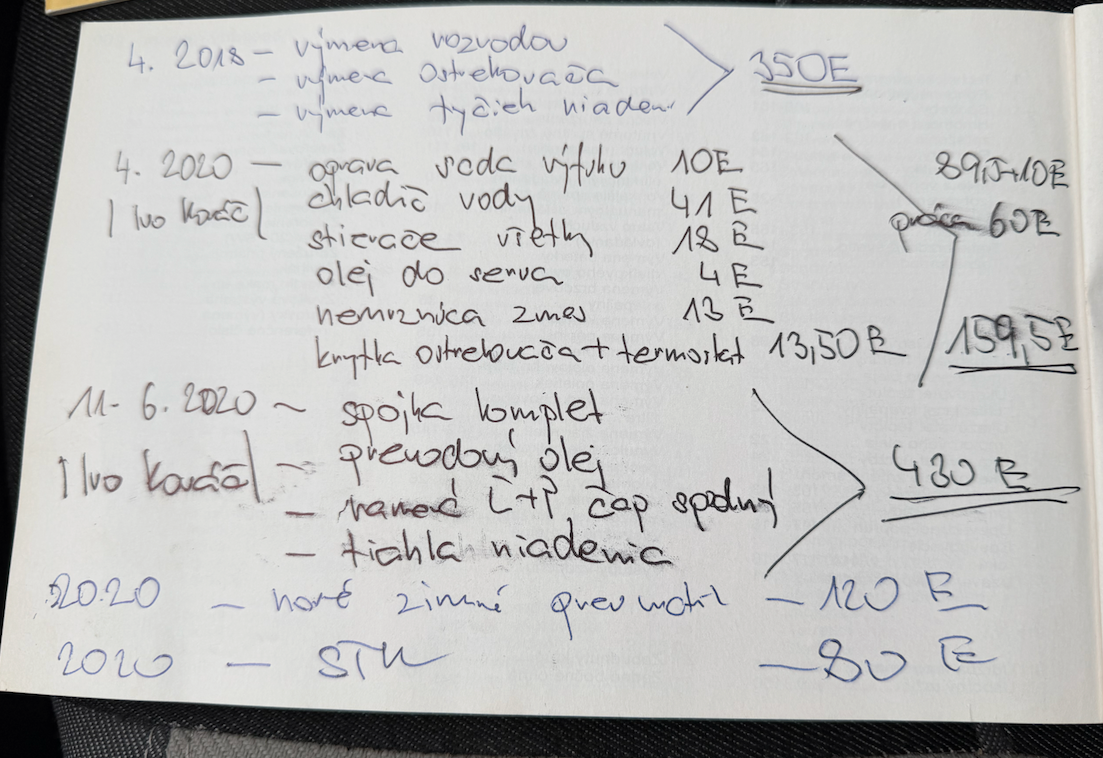 4. 2018 – výmena rozvodov
– výmena Ostrekovača 350E
– výmena tyčiek riaden.
4. 2020 – oprava sada výfuku 10E
| Ivo Kováč| chladič vody 41 E
stierače všetky 18 E
olej do serva 4 E
nemrznúca zmes 13 E
krytka ostrekovača + termostat 13,50 E
89,5+10E
práca 60E
159,5E
11. 6. 2020 – spojka komplet
| Ivo Kováč| – prevodový olej
– rameč Ľ+P čap spodný 480 E
– tiahla riadenia
2020 – nové zimné pneumatik – 120 E
2020 – STK – 80 E